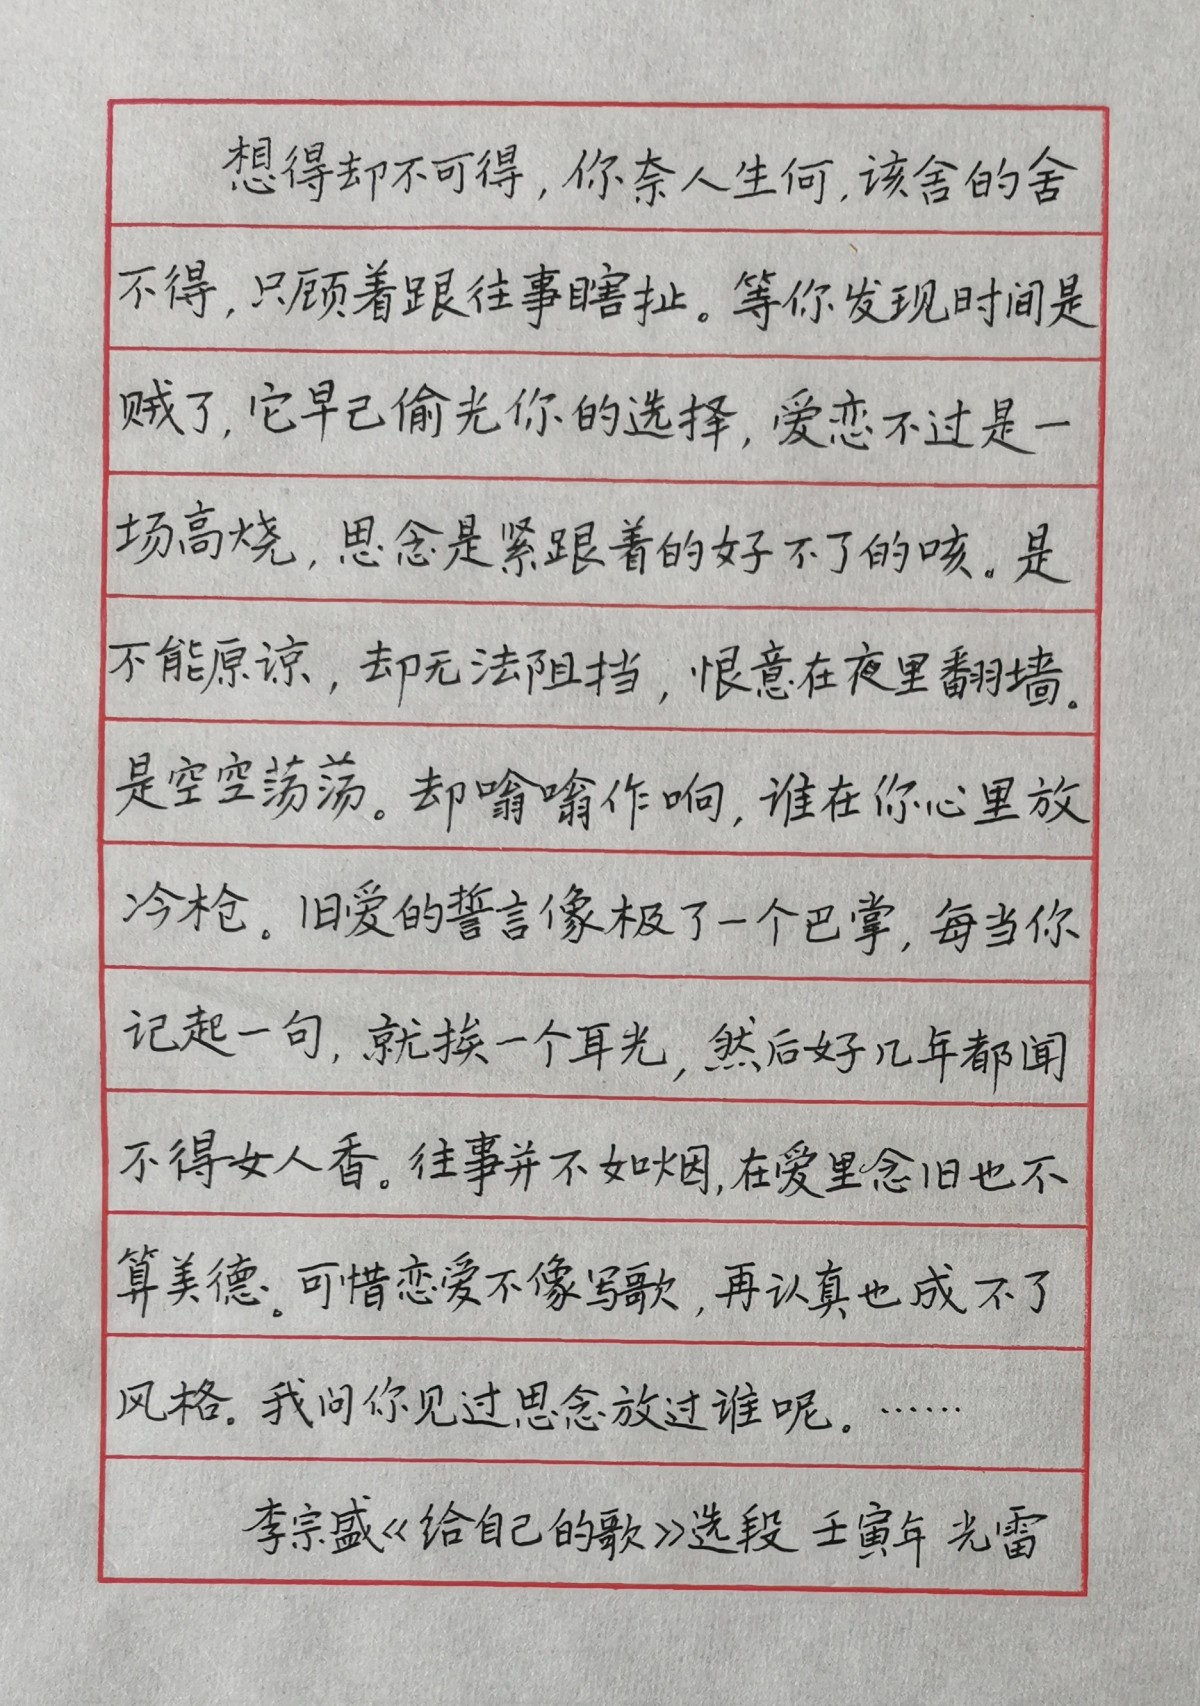 想得却不可得，你奈人生何，该舍的舍
不得，只顾着跟往事瞎扯。等你发现时间是
贼了，它早已偷光你的选择，爱恋不过是一
场高烧，思念是紧跟着的好不了的咳。是
不能原谅，却无法阻挡，恨意在夜里翻墙。
是空空荡荡。却嗡嗡作响，谁在你心里放
冷枪。旧爱的誓言像极了一个巴掌，每当你
记起一句，就挨一个耳光，然后好几年都闻
不得女人香。往事并不如烟，在爱里念旧也不
算美德。可惜恋爱不像写歌，再认真也成不了
风格。我问你见过思念放过谁呢。……
李宗盛《给自己的歌》选段 壬寅年 光雷